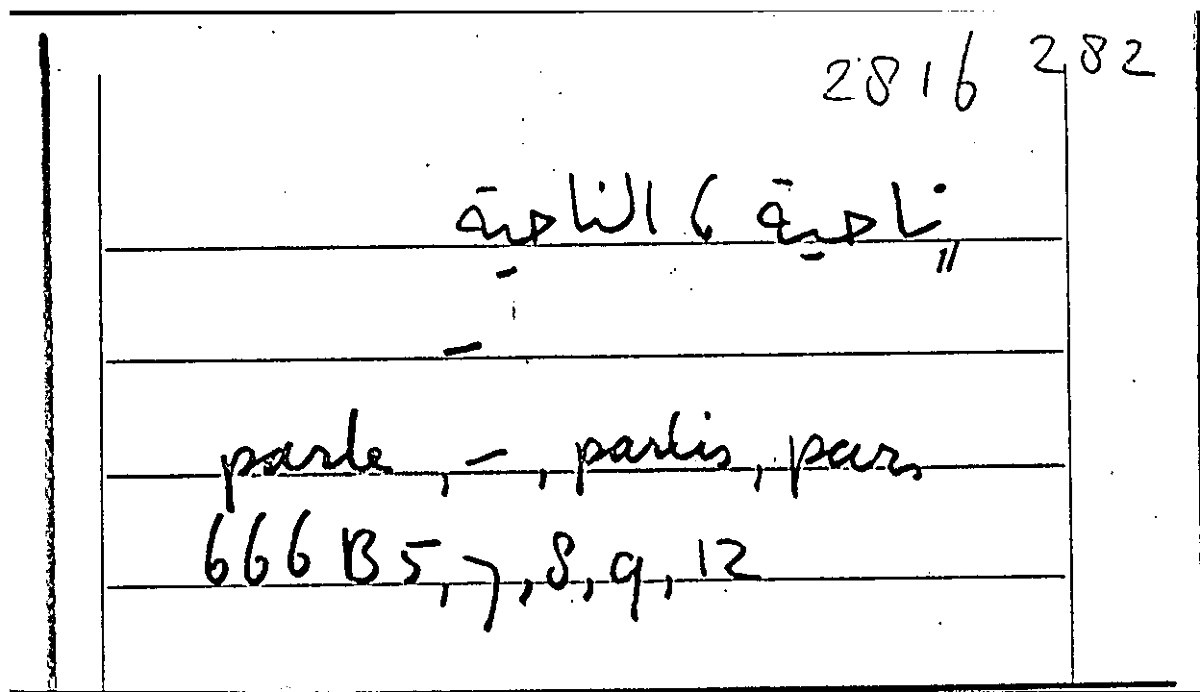 2816 282
ناحية ، الناحية
–
parte, –, partis, pars
666 B 5, 7, 8, 9, 12